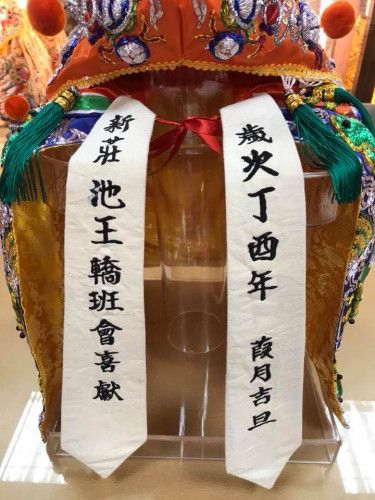 歲火丁酉年 葭月吉旦
新莊池王轎班會喜獻